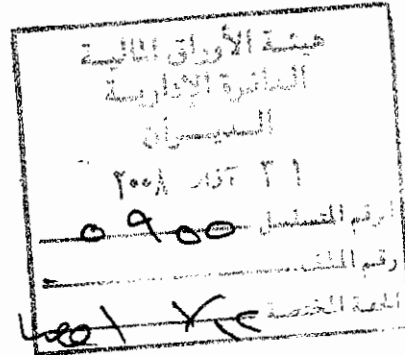 هيئة الأوراق المالية
الدائرة الإدارية
الديوان
٣١ آذار ٢٠٠٨
الرقم المتسلسل ٥٩٥٥
رقم الملف
الجهة المختصة